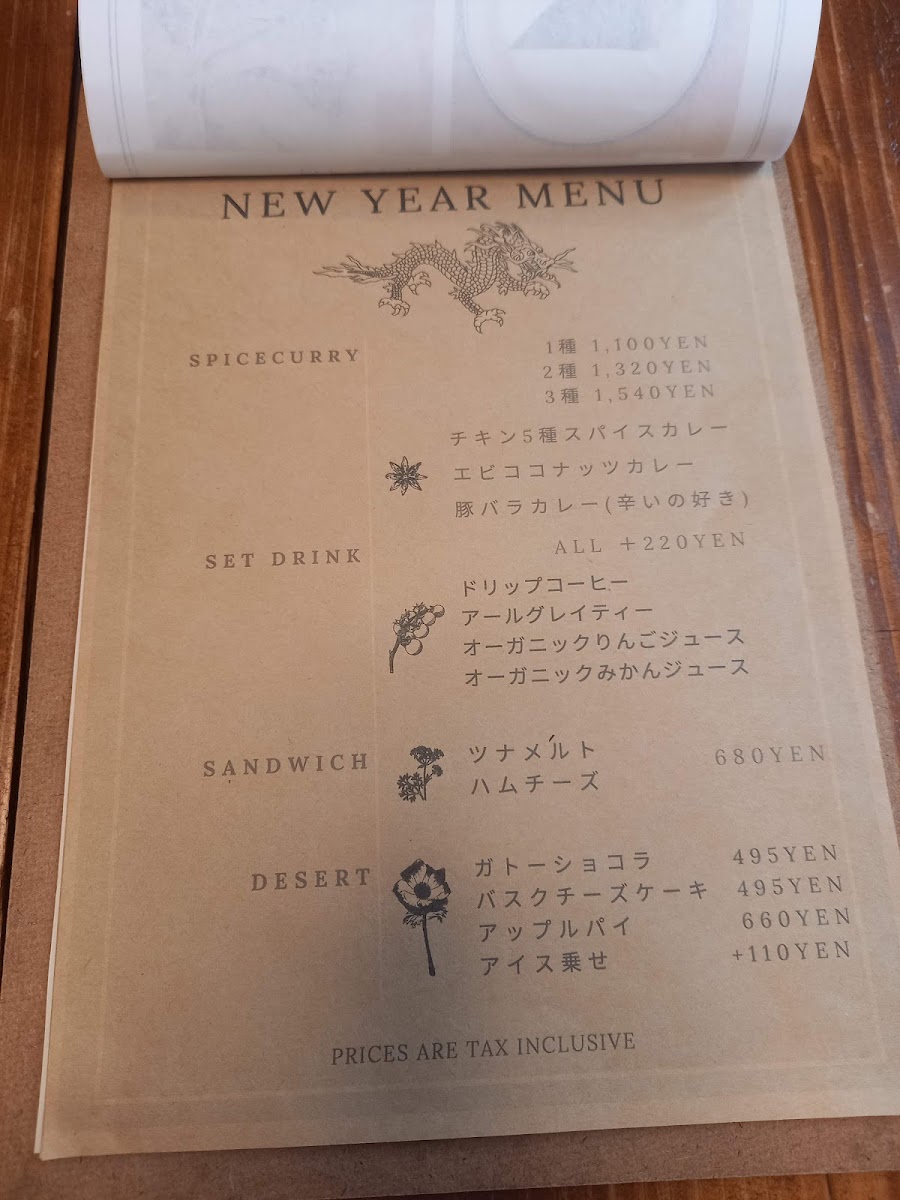 NEW YEAR MENU
SPICECURRY
1種 1,100YEN
2種 1,320YEN
3種 1,540YEN
チキン5種スパイスカレー
エビココナッツカレー
豚バラカレー(辛いの好き)
SET DRINK
ALL +220YEN
ドリップコーヒー
アールグレイティー
オーガニックりんごジュース
オーガニックみかんジュース
SANDWICH
ツナメルト 680YEN
ハムチーズ
DESERT
ガトーショコラ 495YEN
バスクチーズケーキ 495YEN
アップルパイ 660YEN
アイス乗せ +110YEN
PRICES ARE TAX INCLUSIVE